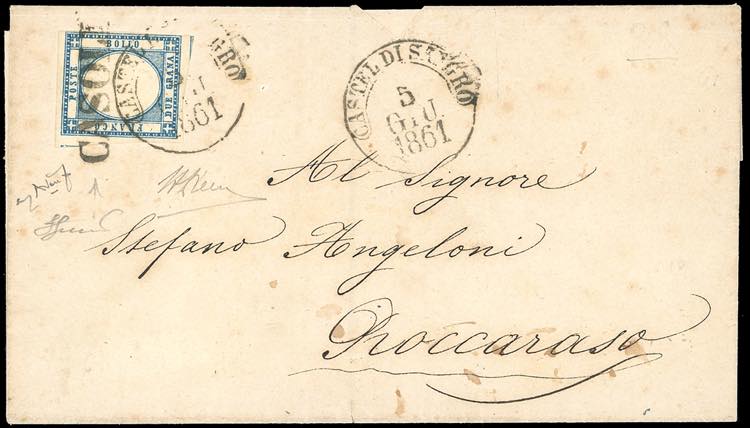 BOLLO
POSTE
DUE GRANA
FRANCO
CASTEL DI SANGRO
1861
CASTEL DI SANGRO
5
GIU
1861
Al Signore
Stefano Angeloni
Roccaraso